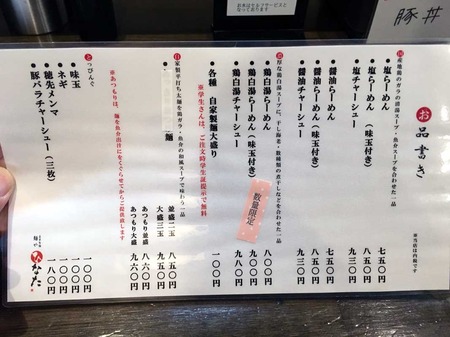 お品書き
国産地鶏のガラの清湯スープ・魚介スープを合わせた一品
・塩らーめん 七五〇
・塩らーめん（味玉付き） 八五〇
・塩チャーシュー 九三〇
・醤油らーめん 七五〇
・醤油らーめん（味玉付き） 八五〇
・醤油チャーシュー 九三〇
※当店は内税です
濃厚な鶏白湯スープに、干し海老・数種類の煮干しなどを合わせた一品
・鶏白湯らーめん 八〇〇
・鶏白湯らーめん（味玉付き） 九〇〇
・鶏白湯チャーシュー 九八〇
数量限定
・各種 自家製麺大盛り 一〇〇
※学生さんは、ご注文時学生証提示で無料
自家製平打ち太麺を鶏ガラ・魚介の和風スープで味わう一品
麺
並盛二玉 八五〇
大盛三玉 九五〇
あつもり並盛 八六〇
あつもり大盛 九六〇
※あつもりは、麺を魚介出汁にをくぐらせてからご提供致します
とっぴんぐ
・味玉 一〇〇
・ネギ 一〇〇
・穂先メンマ 一〇〇
・豚バラチャーシュー（三枚） 一八〇
麺や
ひなた
お水はセルフサービスと
なっております
豚丼